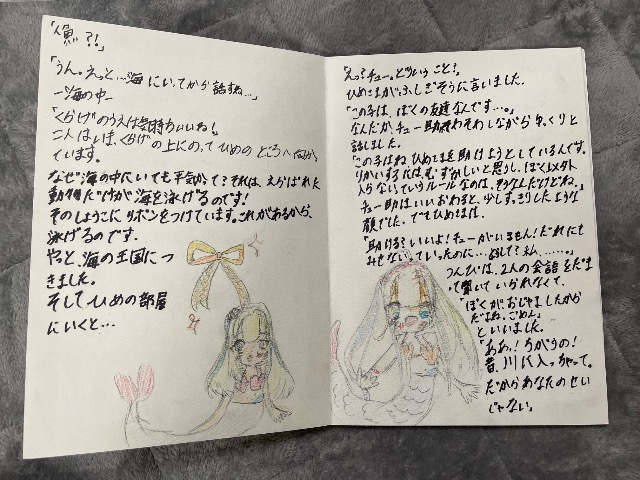 「人魚?!」
「うん。えっと…海にいってから話すね…」
ー海の中ー
「くらげのうえは気持ちいいね!」
二人はいま、くらげの上にのってひめのところへ向かっ
ています。
なぜ海の中にいても平気かって?それは、えらばれた
動物だけが海を泳げるのです!
そのしょうこにリボンをつけています。これがあるから、
泳げるのです。
やっと、海の王国につ
きました。
そしてひめの部屋
にいくと…
「えっ?チュー。どういうこと?」
ひめさまがふしぎそうに言いました。
「この子は、ぼくの友達なんです…。」
なんだか、チュー助はそわそわしながらゆっくりと
話しました。
「この子はねひめさまを助けようとしているんです。
りかいするには、むずかしいと思うし、ぼく以外
入らないっていうルールなのは、そうなんだけどね。」
チュー助はいいおわると、少しすっきりしたような
顔でした。でもひめさまは、
「助ける?いいよ!チューがいません!だれにも
みせないっていったのに…どうして?私……。」
つんぴは、2人の会話をだま
って聞いていられなくて、
「ぼくがおじゃましたから
だよね、ごめん。」
といいました。
「ああっ!ちがうの!
昔、川に入っちゃって。
だからあなたのせい
じゃない」